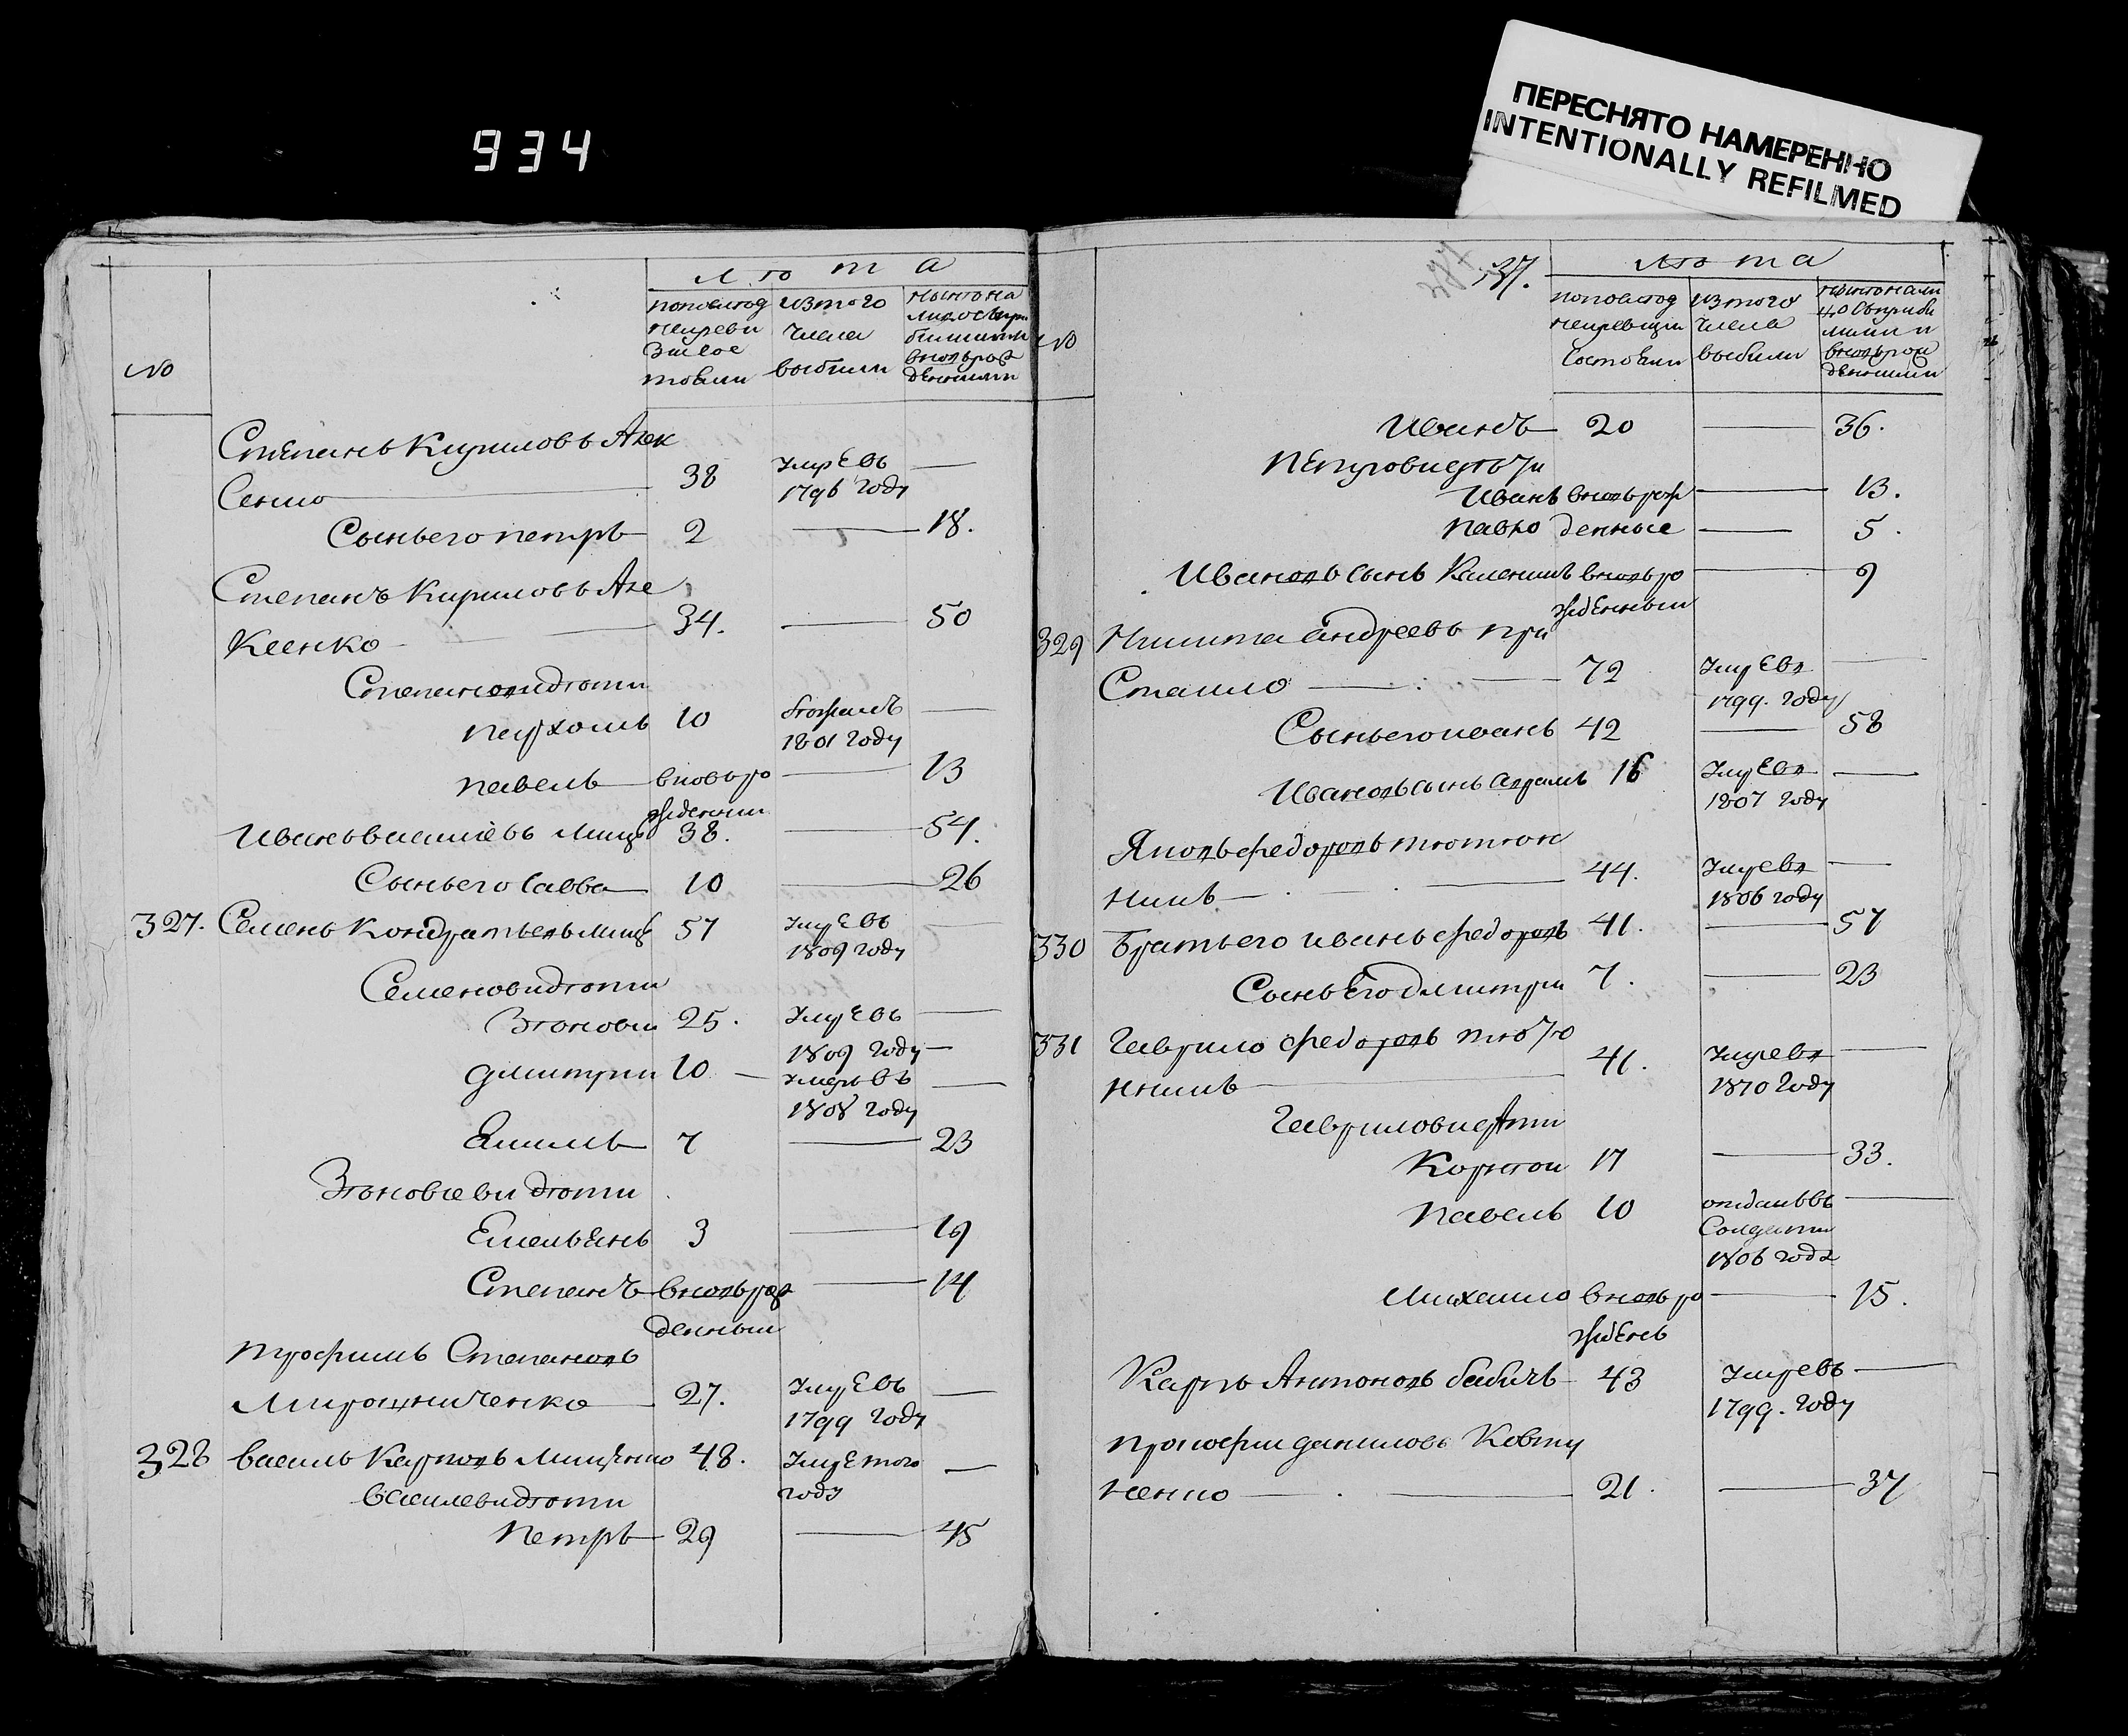 934
ПЕРЕСНЯТО НАМЕРЕННО
INTENTIONALLY REFILMED
Лѣта
№
по послед
ней реви
зіи сос
тояли
из того
числа
выбыли
Степанъ Кириловъ Алек
сенко 38 умре въ
1796 году
Сынъ его петръ 2 18.
Степанъ Кириловъ Але
ксенко 34. 50
Степановы дѣти
пархомъ 10 бежалъ
1801 году
павелъ вновь ро 13
жденный
Иванъ василіевъ 38. 54.
Сынъ его Савва 10 26
327. Семенъ Кондратьевъ 57 умре въ
1809 году
Семеновы дѣти
Зѣновій 25. умре въ
1809 году
Дмитрій 10 умеръ въ
1808 году
Якимъ 7 23
Зѣновіевы дѣти
Емельянъ 3 19
Степанъ вновь рож 14
денный
трофимъ Степановъ
Мирошниченко 27. умре въ
1799 году
328 василь Карповъ Мищенко 48. умре того
году
василевы дѣти
петръ 29 45
37.
Лѣта
№
по послед
ней ревизіи
состояли
из того
числа
выбыли
Иванъ 20 36.
Петровы дѣти
Иванъ вновь рож 13.
павло денные 5.
Ивановъ сынъ вновь ро 9
жденный
329 Никита андреевъ при
сташко 72 умре въ
1799. году
Сынъ его иванъ 42 58
Ивановъ сынъ абрамъ 16 умре въ
1807 году
Яковъ федоровъ тютюн
никъ 44. умре въ
1806 году
330 братъ его иванъ федоровъ 41. 57
Сынъ Его Дмитрій 7. 23
331 Гаврило федоровъ тютю
нникъ 41. умре въ
1810 году
Гавриловы дѣти
Корней 17 33.
павелъ 10 отданъ въ
Солдаты
1806 года
Михайло вновь ро 15.
жденъ
Карпъ Антоновъ бабичъ 43 умре въ
1799. году
прокофій даниловъ Ковту
ненко 21. 37